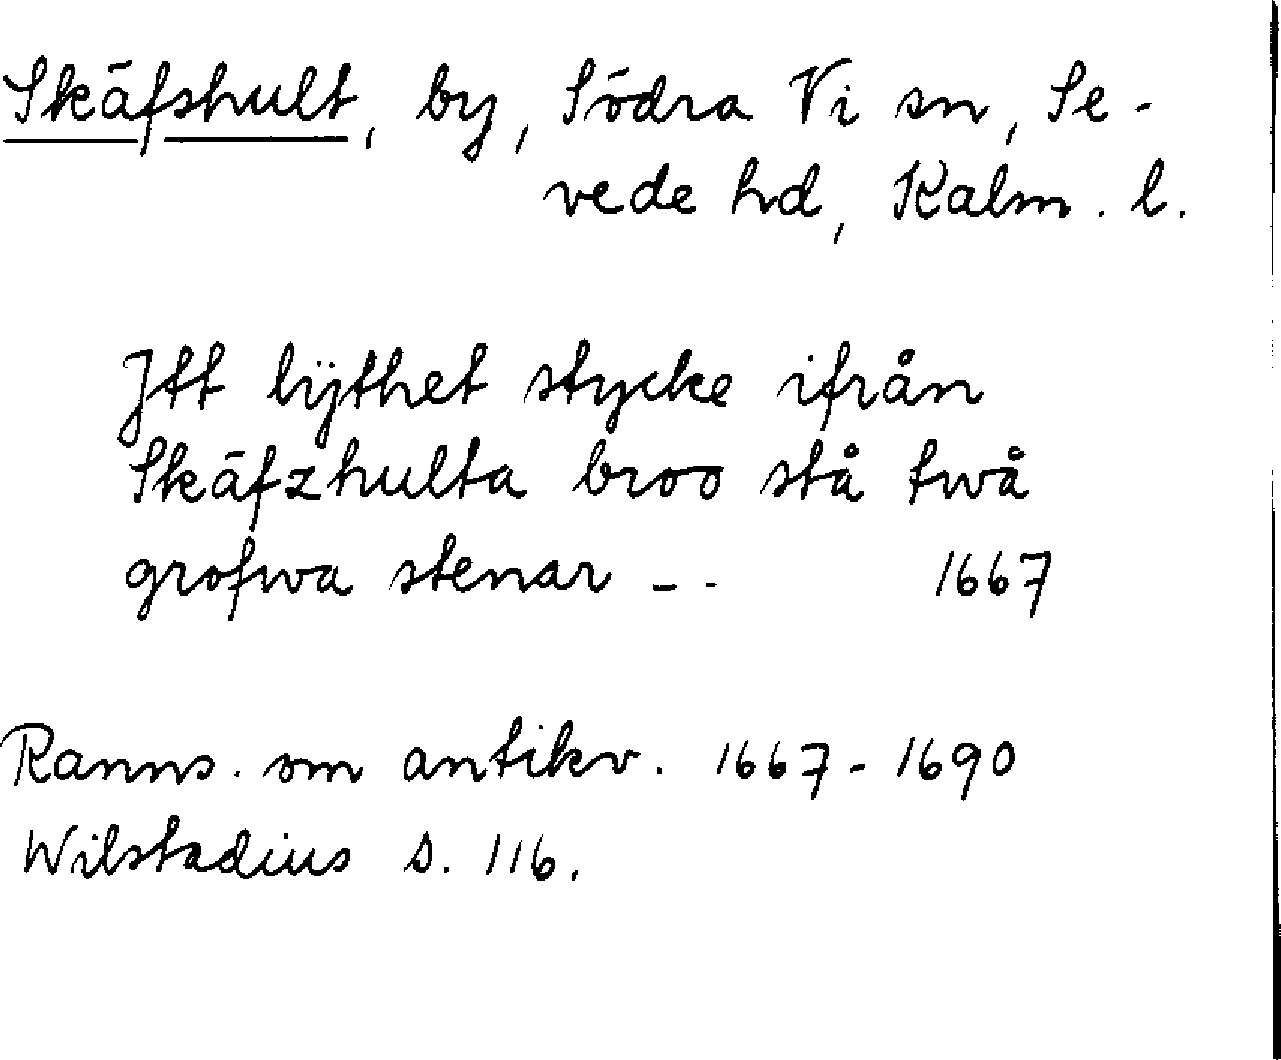 Skäfshult, by, Södra Vi sn, Se-
vede hd, Kalm. l.
Jtt lÿthet stycke ifrån
Skäfzhulta broo stå twå
grofwa stenar -- 1667
Ranns. om antikv. 1667-1690
Wilstadius s. 116.